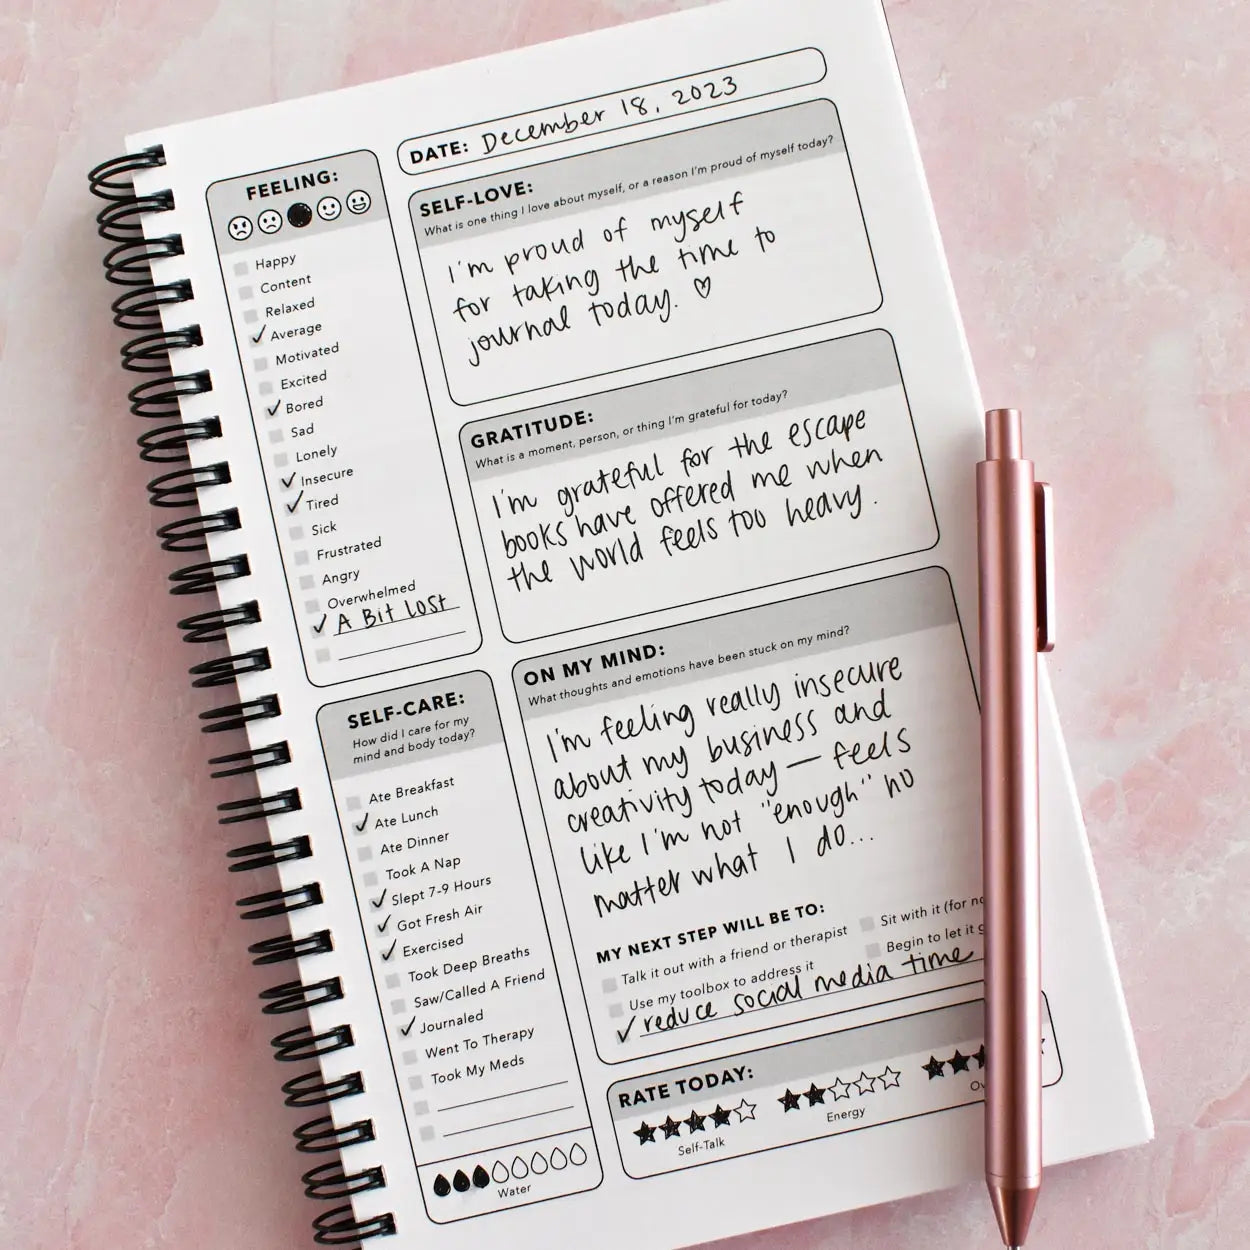 DATE: December 18, 2023
FEELING:
Happy
Content
Relaxed
✓ Average
Motivated
Excited
✓ Bored
Sad
Lonely
✓ Insecure
✓ Tired
Sick
Frustrated
Angry
Overwhelmed
✓ A Bit Lost
SELF-CARE:
How did I care for my
mind and body today?
Ate Breakfast
✓ Ate Lunch
Ate Dinner
Took A Nap
✓ Slept 7-9 Hours
✓ Got Fresh Air
✓ Exercised
Took Deep Breaths
Saw/Called A Friend
✓ Journaled
Went To Therapy
Took My Meds
Water
SELF-LOVE:
What is one thing I love about myself, or a reason I'm proud of myself today?
I'm proud of myself
for taking the time to
journal today. ♡
GRATITUDE:
What is a moment, person, or thing I'm grateful for today?
I'm grateful for the escape
books have offered me when
the world feels too heavy.
ON MY MIND:
What thoughts and emotions have been stuck on my mind?
I'm feeling really insecure
about my business and
creativity today — feels
like I'm not "enough" no
matter what I do...
MY NEXT STEP WILL BE TO:
Talk it out with a friend or therapist
Use my toolbox to address it
Sit with it (for
Begin to let it
✓ reduce social media time
RATE TODAY:
Self-Talk
Energy